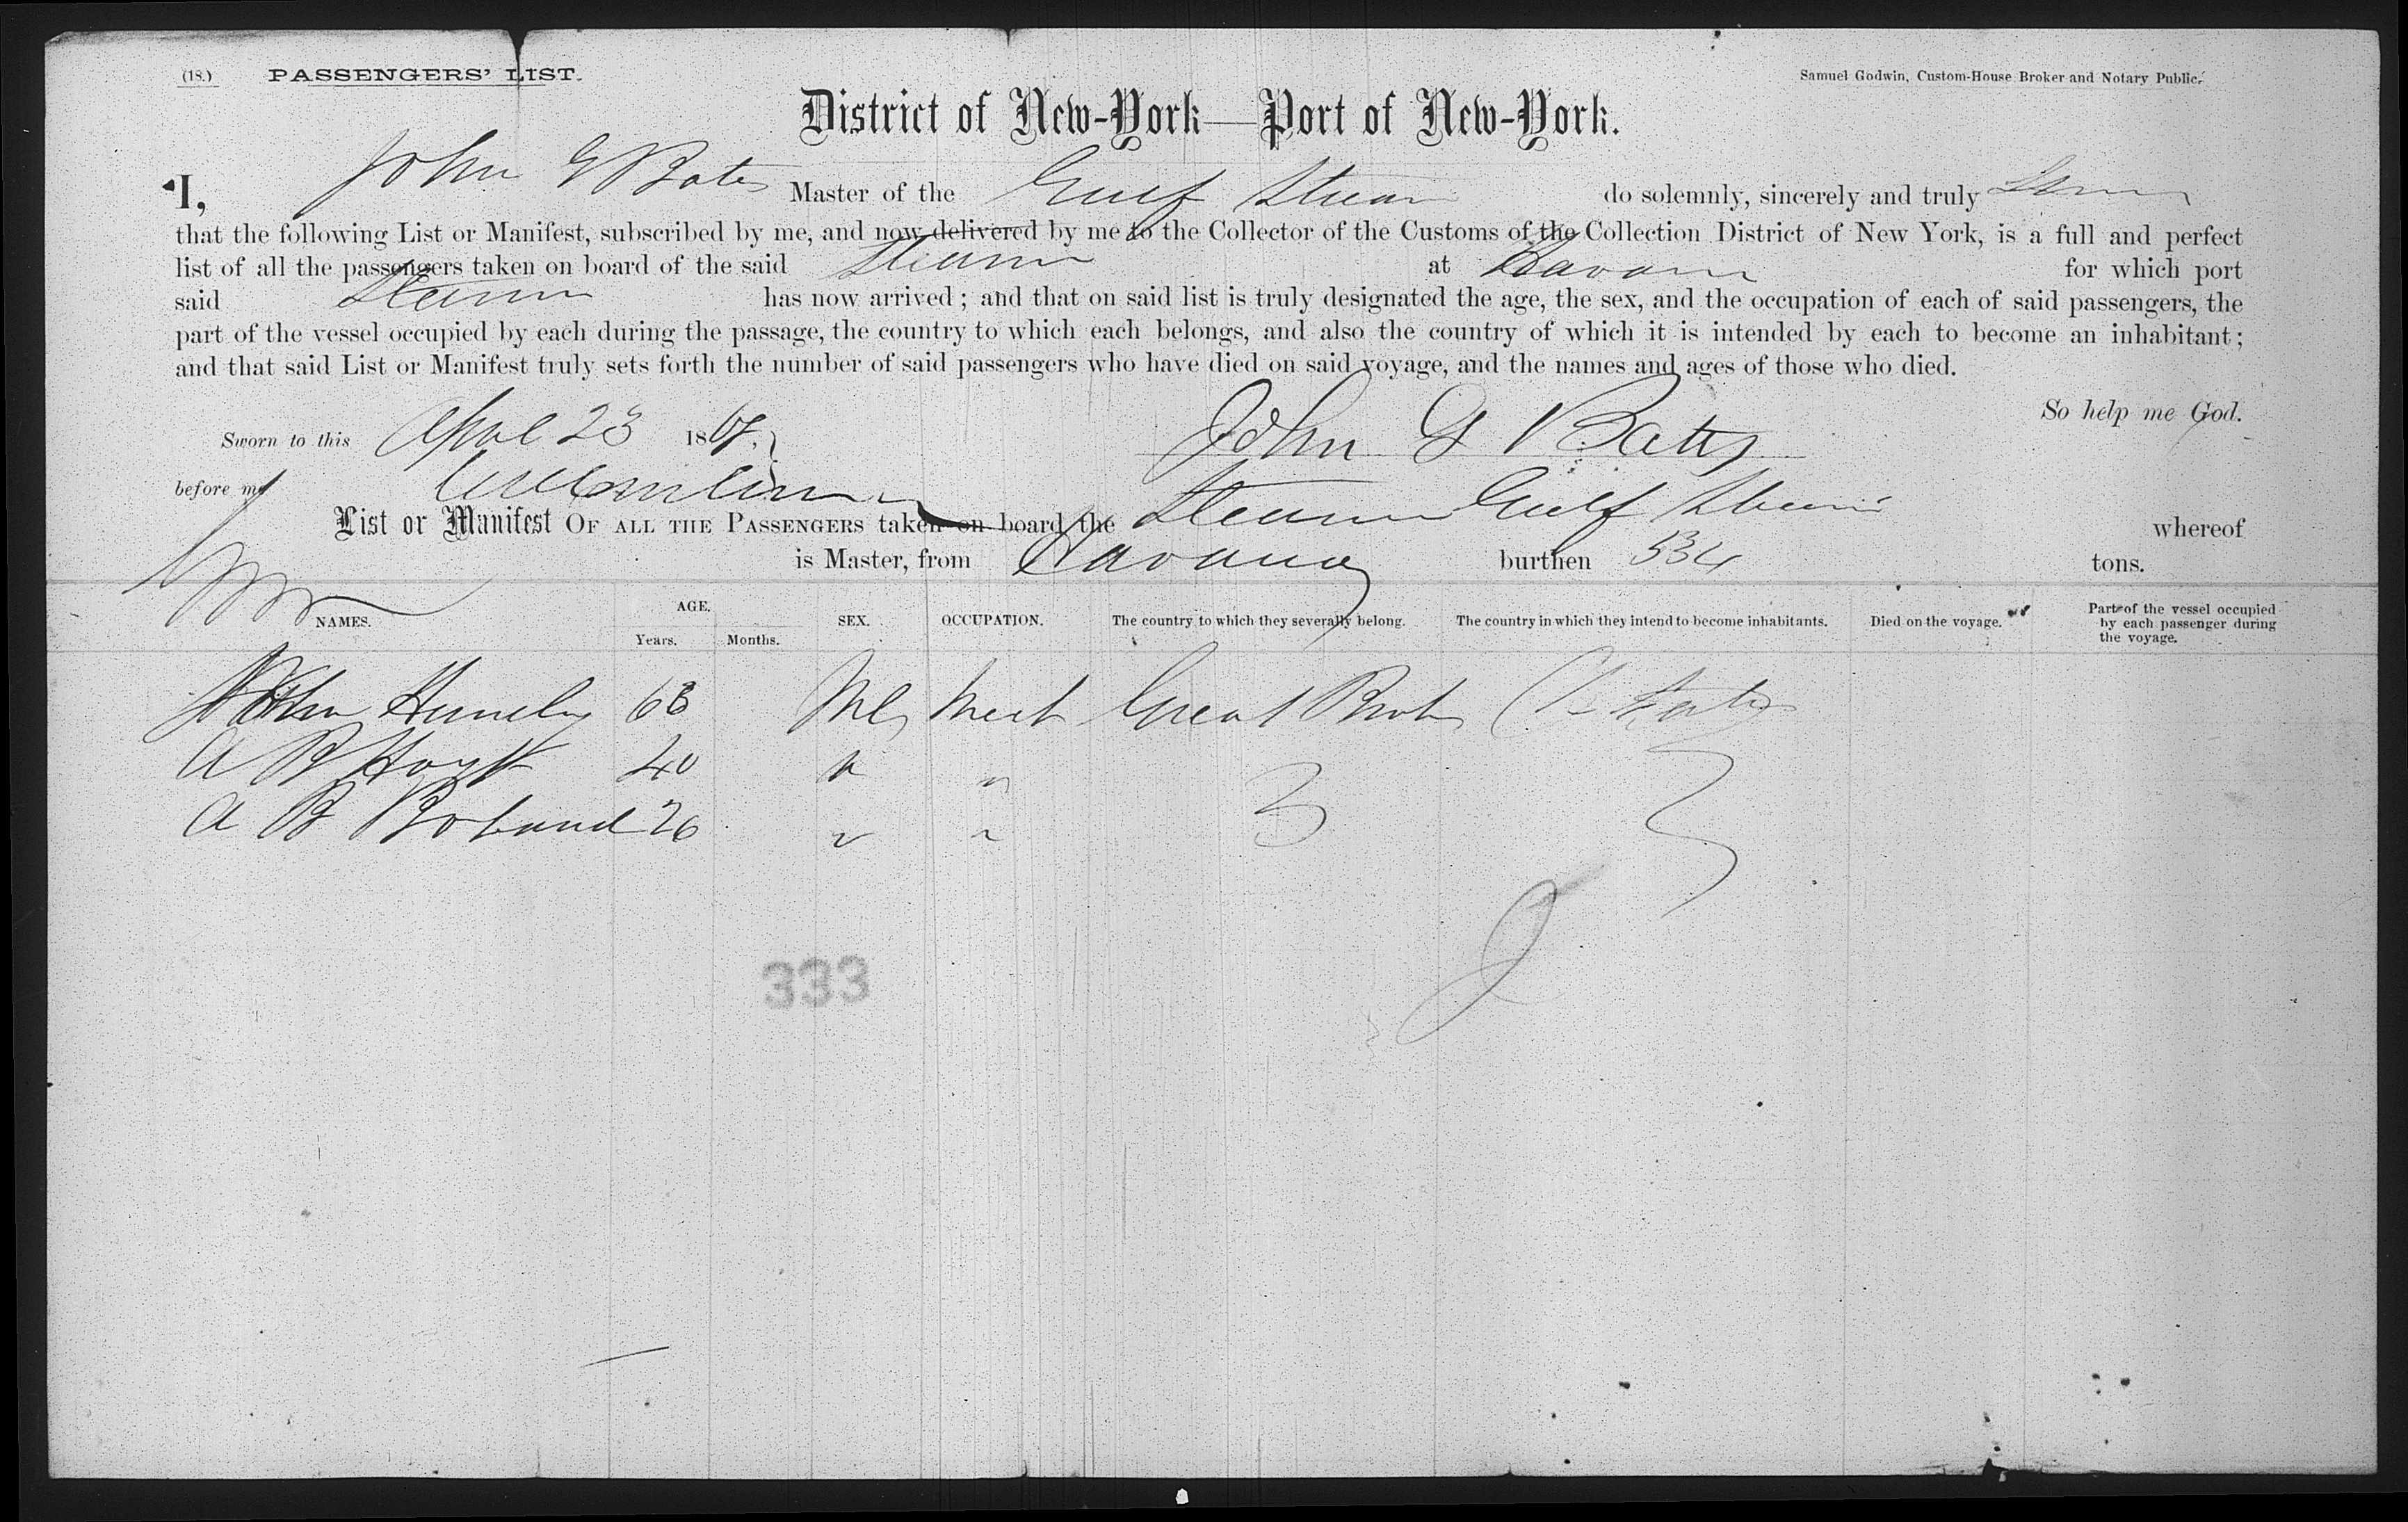 (18.) PASSENGERS' LIST. Samuel Godwin, Custom-House Broker and Notary Public.
District of New-York—Port of New-York.
I, John G Bates Master of the Gulf Stream do solemnly, sincerely and truly
that the following List or Manifest, subscribed by me, and now delivered by me to the Collector of the Customs of the Collection District of New York, is a full and perfect
list of all the passengers taken on board of the said Steamer at Havana for which port
said Steamer has now arrived; and that on said list is truly designated the age, the sex, and the occupation of each of said passengers, the
part of the vessel occupied by each during the passage, the country to which each belongs, and also the country of which it is intended by each to become an inhabitant;
and that said List or Manifest truly sets forth the number of said passengers who have died on said voyage, and the names and ages of those who died.
So help me God.
Sworn to this April 23 186 John G Bates
before me
List or Manifest OF ALL THE PASSENGERS taken on board the Steamer Gulf Stream whereof
is Master, from Havana burthen 534 tons.
NAMES. AGE. Years. Months. SEX. OCCUPATION. The country to which they severally belong. The country in which they intend to become inhabitants. Died on the voyage. Part of the vessel occupied by each passenger during the voyage.
68 Male Mert Great Brit States
A B Hoyt 40 "  "
A B 26 "  "
333